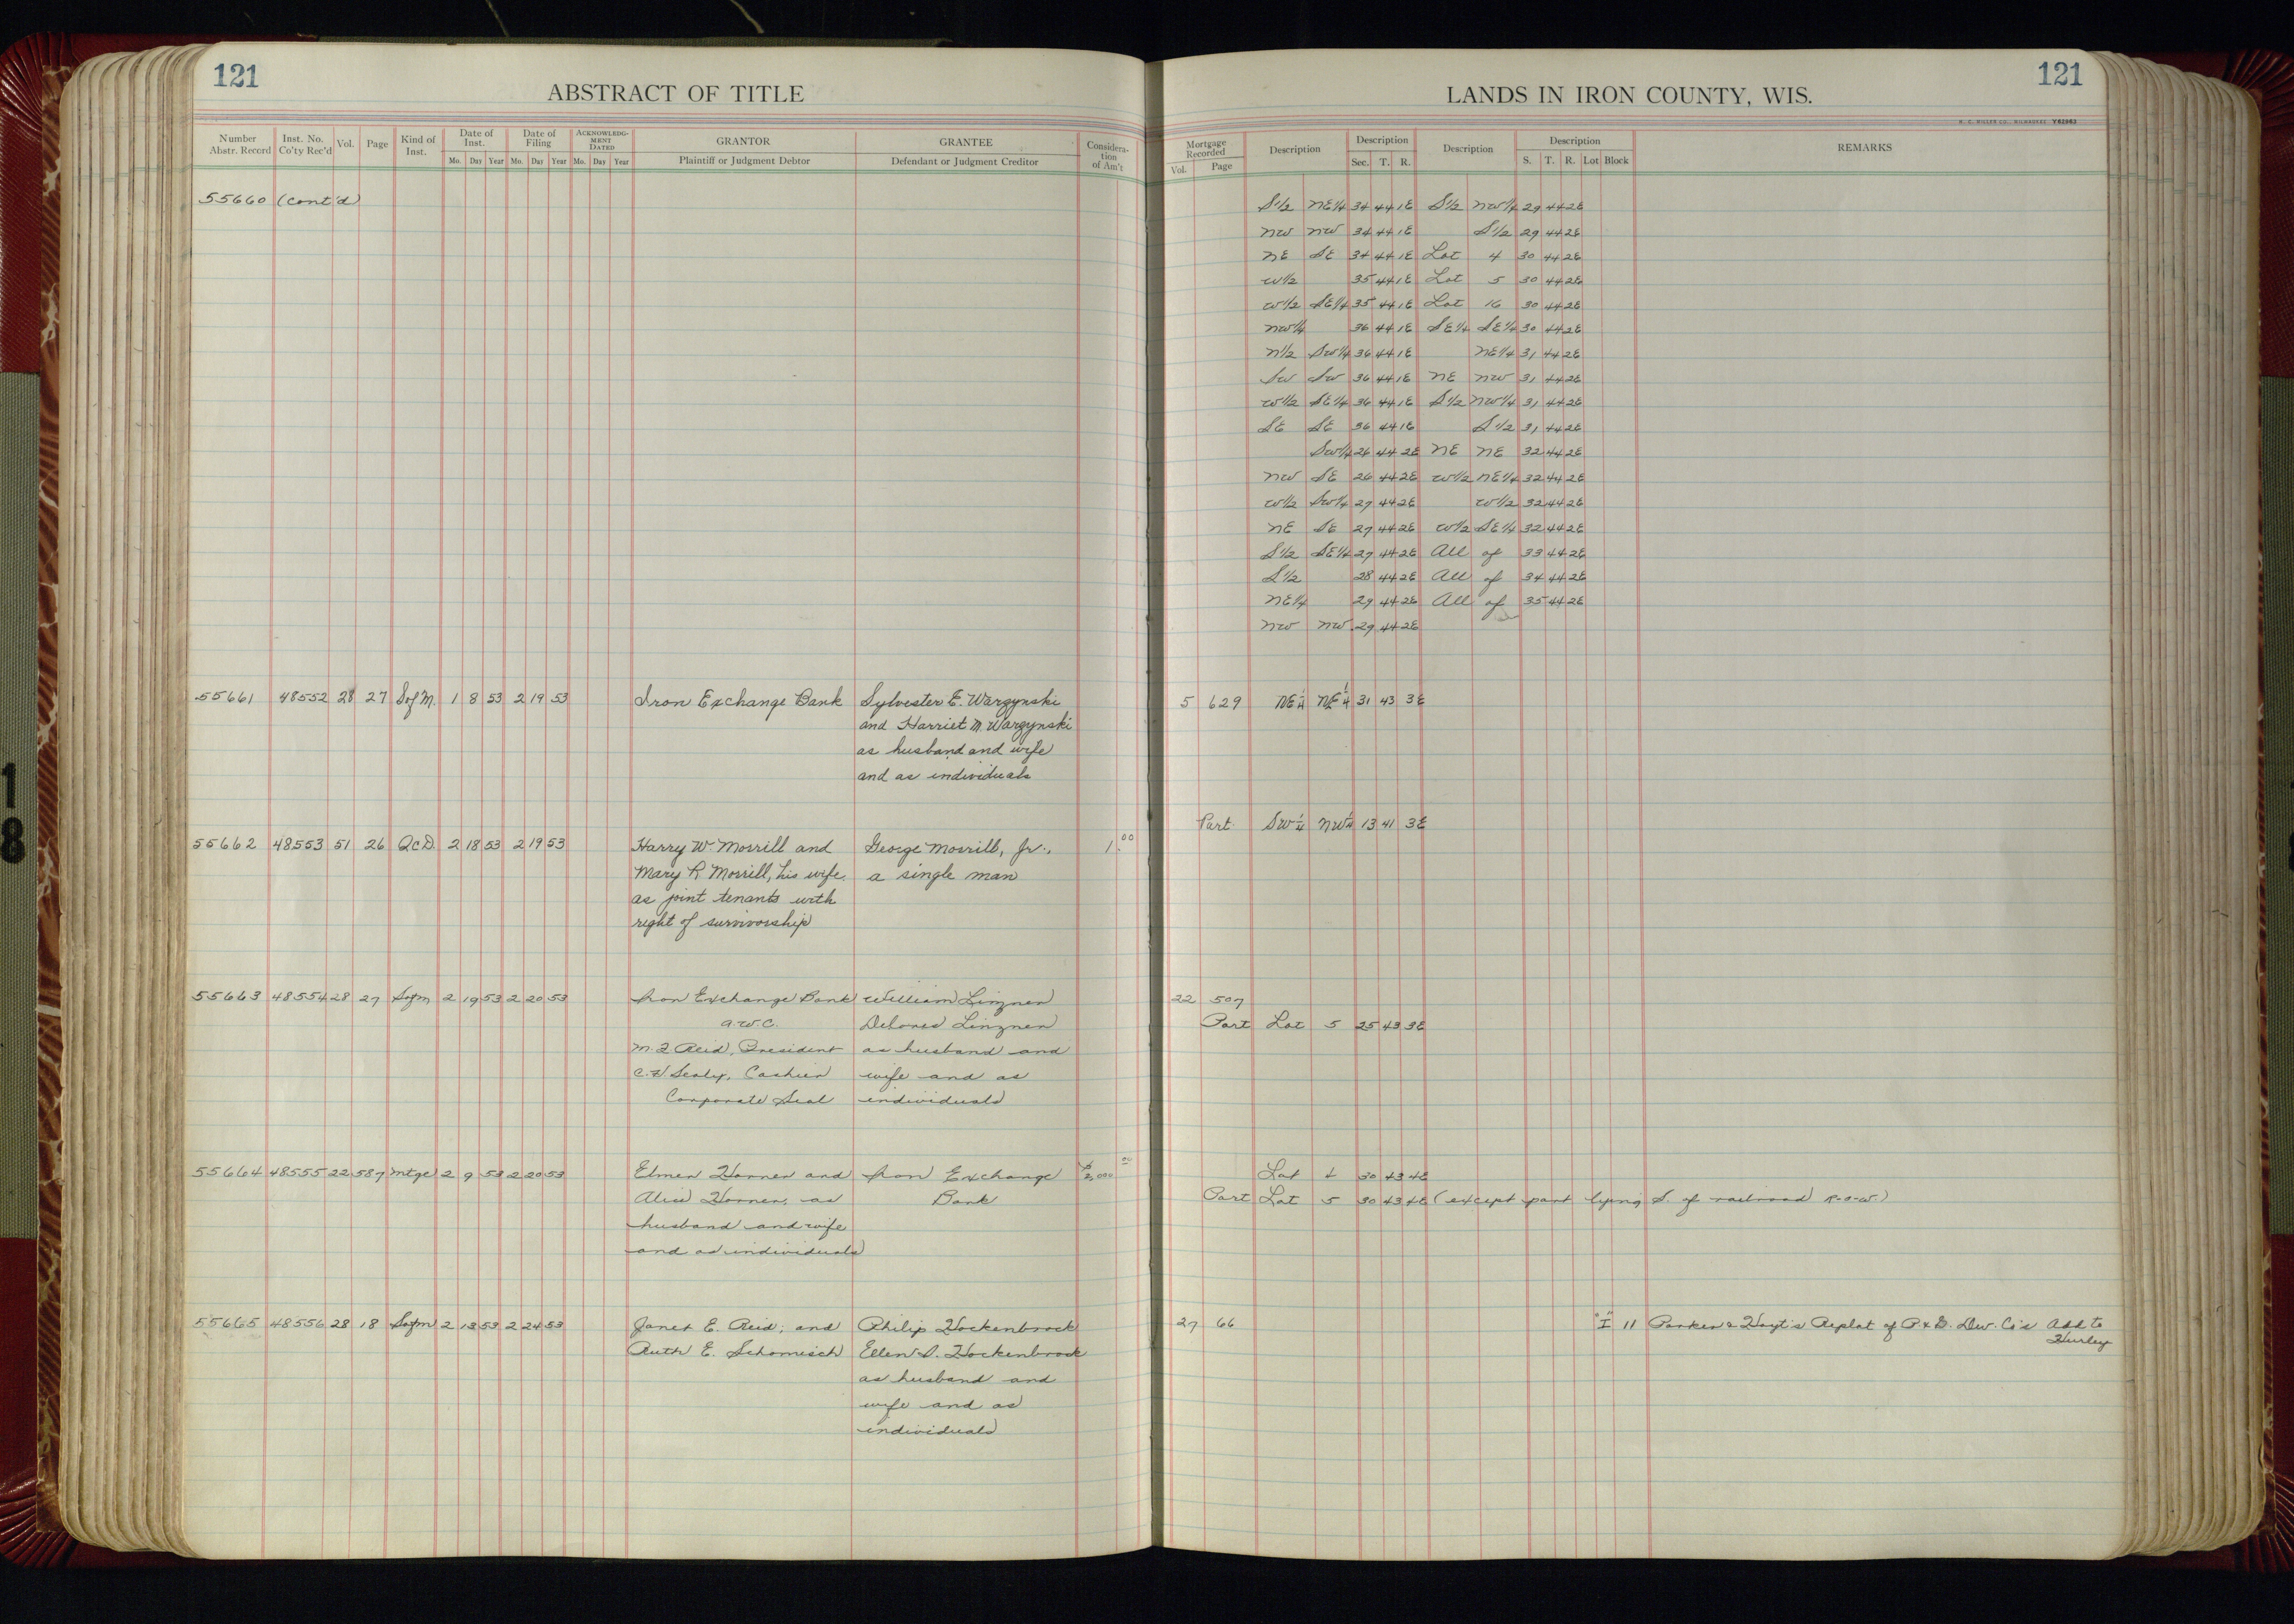 121
ABSTRACT OF TITLE
Number Abstr. Record
Inst. No. Co'ty Rec'd
Vol.
Page
Kind of Inst.
Date of Inst.
Mo. Day Year
Date of Filing
Mo. Day Year
ACKNOWLEDG-MENT DATED
Mo. Day Year
GRANTOR
Plaintiff or Judgment Debtor
GRANTEE
Defendant or Judgment Creditor
Considera-tion of Am't
55660 (cont'd)
55661 48552 28 27 Sof M. 1 8 53 2 19 53 Iron Exchange Bank Sylvester E. Warzynski
and Harriet M. Warzynski
as husband and wife
and as individuals
55662 48553 51 26 QcD. 2 18 53 2 19 53 Harry W. Morrill and George Morrill, Jr., 1.00
Mary R. Morrill, his wife, a single man
as joint tenants with
right of survivorship
55663 48554 28 27 Sofm 2 19 53 2 20 53 Iron Exchange Bank William Linznen
a.w.c. Delores Linznen
M.J. Reid, President as husband and
Cashier wife and as
Corporate Seal individuals
55664 48555 22 587 mtge 2 9 53 2 20 53 Elmer Horner and Iron Exchange $2,000 00
Alice Horner, as Bank
husband and wife
and as individuals
55665 48556 28 18 Sofm 2 13 53 2 24 53 Janet E. Reid; and Philip Hockenbrock
Ruth E. Schomisch Ellen D. Hockenbrock
as husband and
wife and as
individuals
121
LANDS IN IRON COUNTY, WIS.
H. C. MILLER CO., MILWAUKEE Y62963
Mortgage Recorded
Vol. Page
Description
Description
Sec. T. R.
Description
Description
S. T. R. Lot Block
REMARKS
S1/2 NE1/4 34 44 1E S1/2 NW1/4 29 44 2E
NW NW 34 44 1E S1/2 29 44 2E
NE SE 34 44 1E Lot 4 30 44 2E
W1/2 35 44 1E Lot 5 30 44 2E
W1/2 SE1/4 35 44 1E Lot 16 30 44 2E
NW1/4 36 44 1E SE1/4 SE1/4 30 44 2E
N1/2 SW1/4 36 44 1E NE1/4 31 44 2E
SW SW 36 44 1E NE NW 31 44 2E
W1/2 SE1/4 36 44 1E S1/2 NW1/4 31 44 2E
SE SE 36 44 1E S1/2 31 44 2E
SW1/4 26 44 2E NE NE 32 44 2E
NW SE 26 44 2E W1/2 NE1/4 32 44 2E
W1/2 SW1/4 27 44 2E W1/2 32 44 2E
NE SE 27 44 2E W1/2 SE1/4 32 44 2E
S1/2 SE1/4 27 44 2E All of 33 44 2E
S1/2 28 44 2E All of 34 44 2E
NE1/4 29 44 2E All of 35 44 2E
NW NW 29 44 2E
5 629 NE1/4 NE1/4 31 43 3E
Part SW1/4 NW1/4 13 41 3E
22 507
Part Lot 5 25 43 3E
Lot 30 43 4E
Part Lot 5 30 43 4E (except part lying S. of railroad R-O-W.)
27 66 "I" 11 Parker & Hoyt's Replat of P & D. Dev. Co's Add to
Hurley
1
8